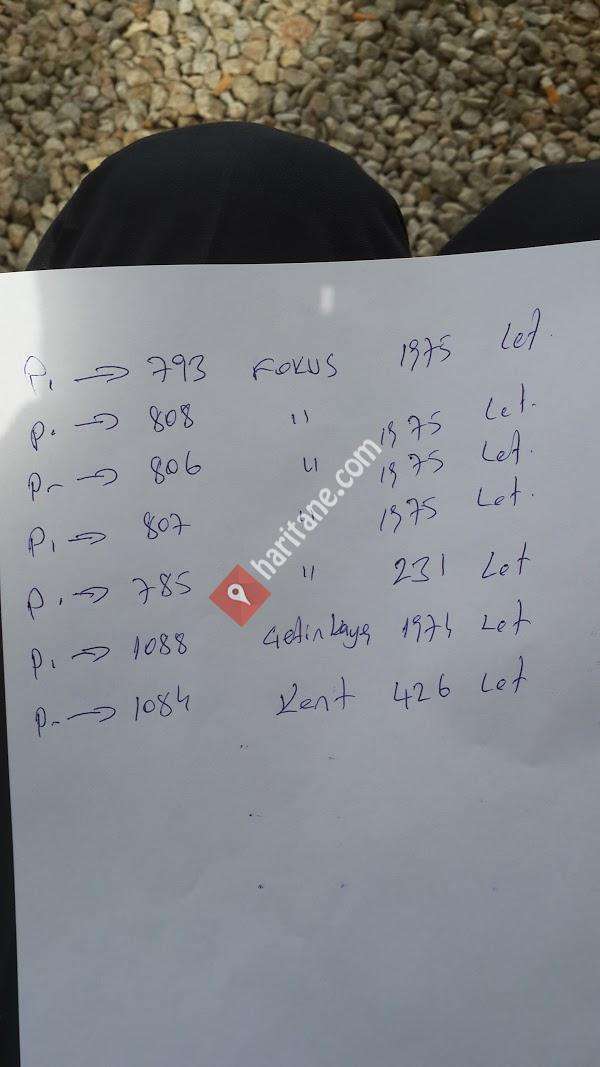 P. → 793 FOKUS 1975 Let.
P. → 808 " 1975 Let.
P. → 806 " 1975 Let.
P. → 807 " 1975 Let.
P. → 785 " 231 Let
P. → 1088 Çetinkaya 1974 Let
P. → 1084 Kent 426 Let
haritane.com